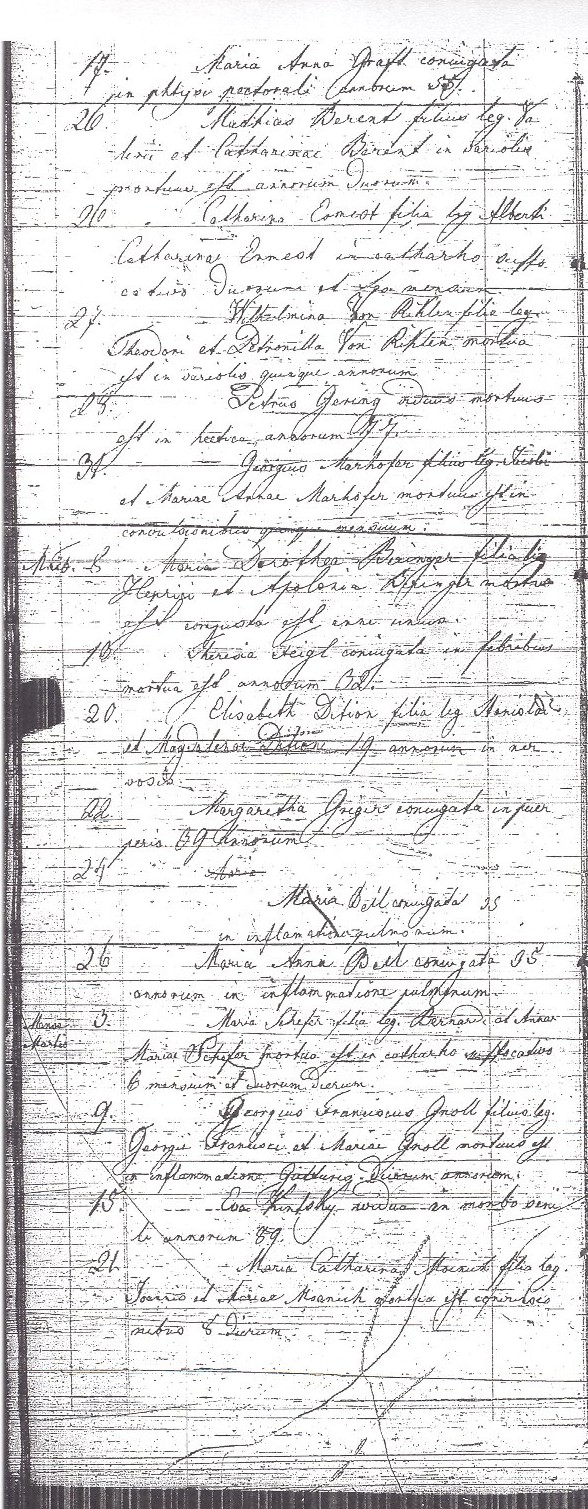 17. Maria Anna Graft coniugata
in phtysi pectorali annorum 55.
26 Mathias Berent filius leg. Va
lerii et Catharinae Berent in variolis
mortuus est annorum duorum.
26 Catharina Ernest filia leg Alberti
Catharinae Ernest in catharho suffo
cativo duorum et mensium
27. Wilhelmina Von Riklen filia leg.
Theodori et Petronilla Von Riklen mortua
est in variolis quinque annorum
28. Petrus Gering viduus mortuus
est in hectica, annorum 77.
31. Georgius Marhofer filius leg. Jacobi
et Mariae Annae Marhofer mortuus est in
convulsionibus quinque mensium.
8 Maria Dorothea Beringer filia leg
Henrici et Apolonia Beringer mortua
est est anni unius.
10. Theresia coniugata in febribus
mortua est annorum 32.
20. Elisabeth Dition filia leg Stanislai
et Magdalenae Dition 19 annorum in ner
vosis.
22 Margaretha Griger coniugata in puer
perio 39 Annorum
24
Maria Bell coniugata 35
in inflamatione pulmonum.
26 Maria Anna Bell coniugata 35
annorum in inflammatione pulmonum.
Mense 3. Maria Schefer filia leg. Bernardi et Annae
Martio Mariae Schefer mortua est in catharho suffocativo
6 mensium et duorum dierum.
9. Georgius Franciscus Gnoll filius leg.
Georgii Francisci et Mariae Gnoll mortuus est
in inflammatione Gutturis duorum annorum.
15 Eva vidua in morbo seni
li annorum 89.
21. Maria Catharina filia leg.
Joannis et Mariae mortua est convulsio
nibus 8 dierum